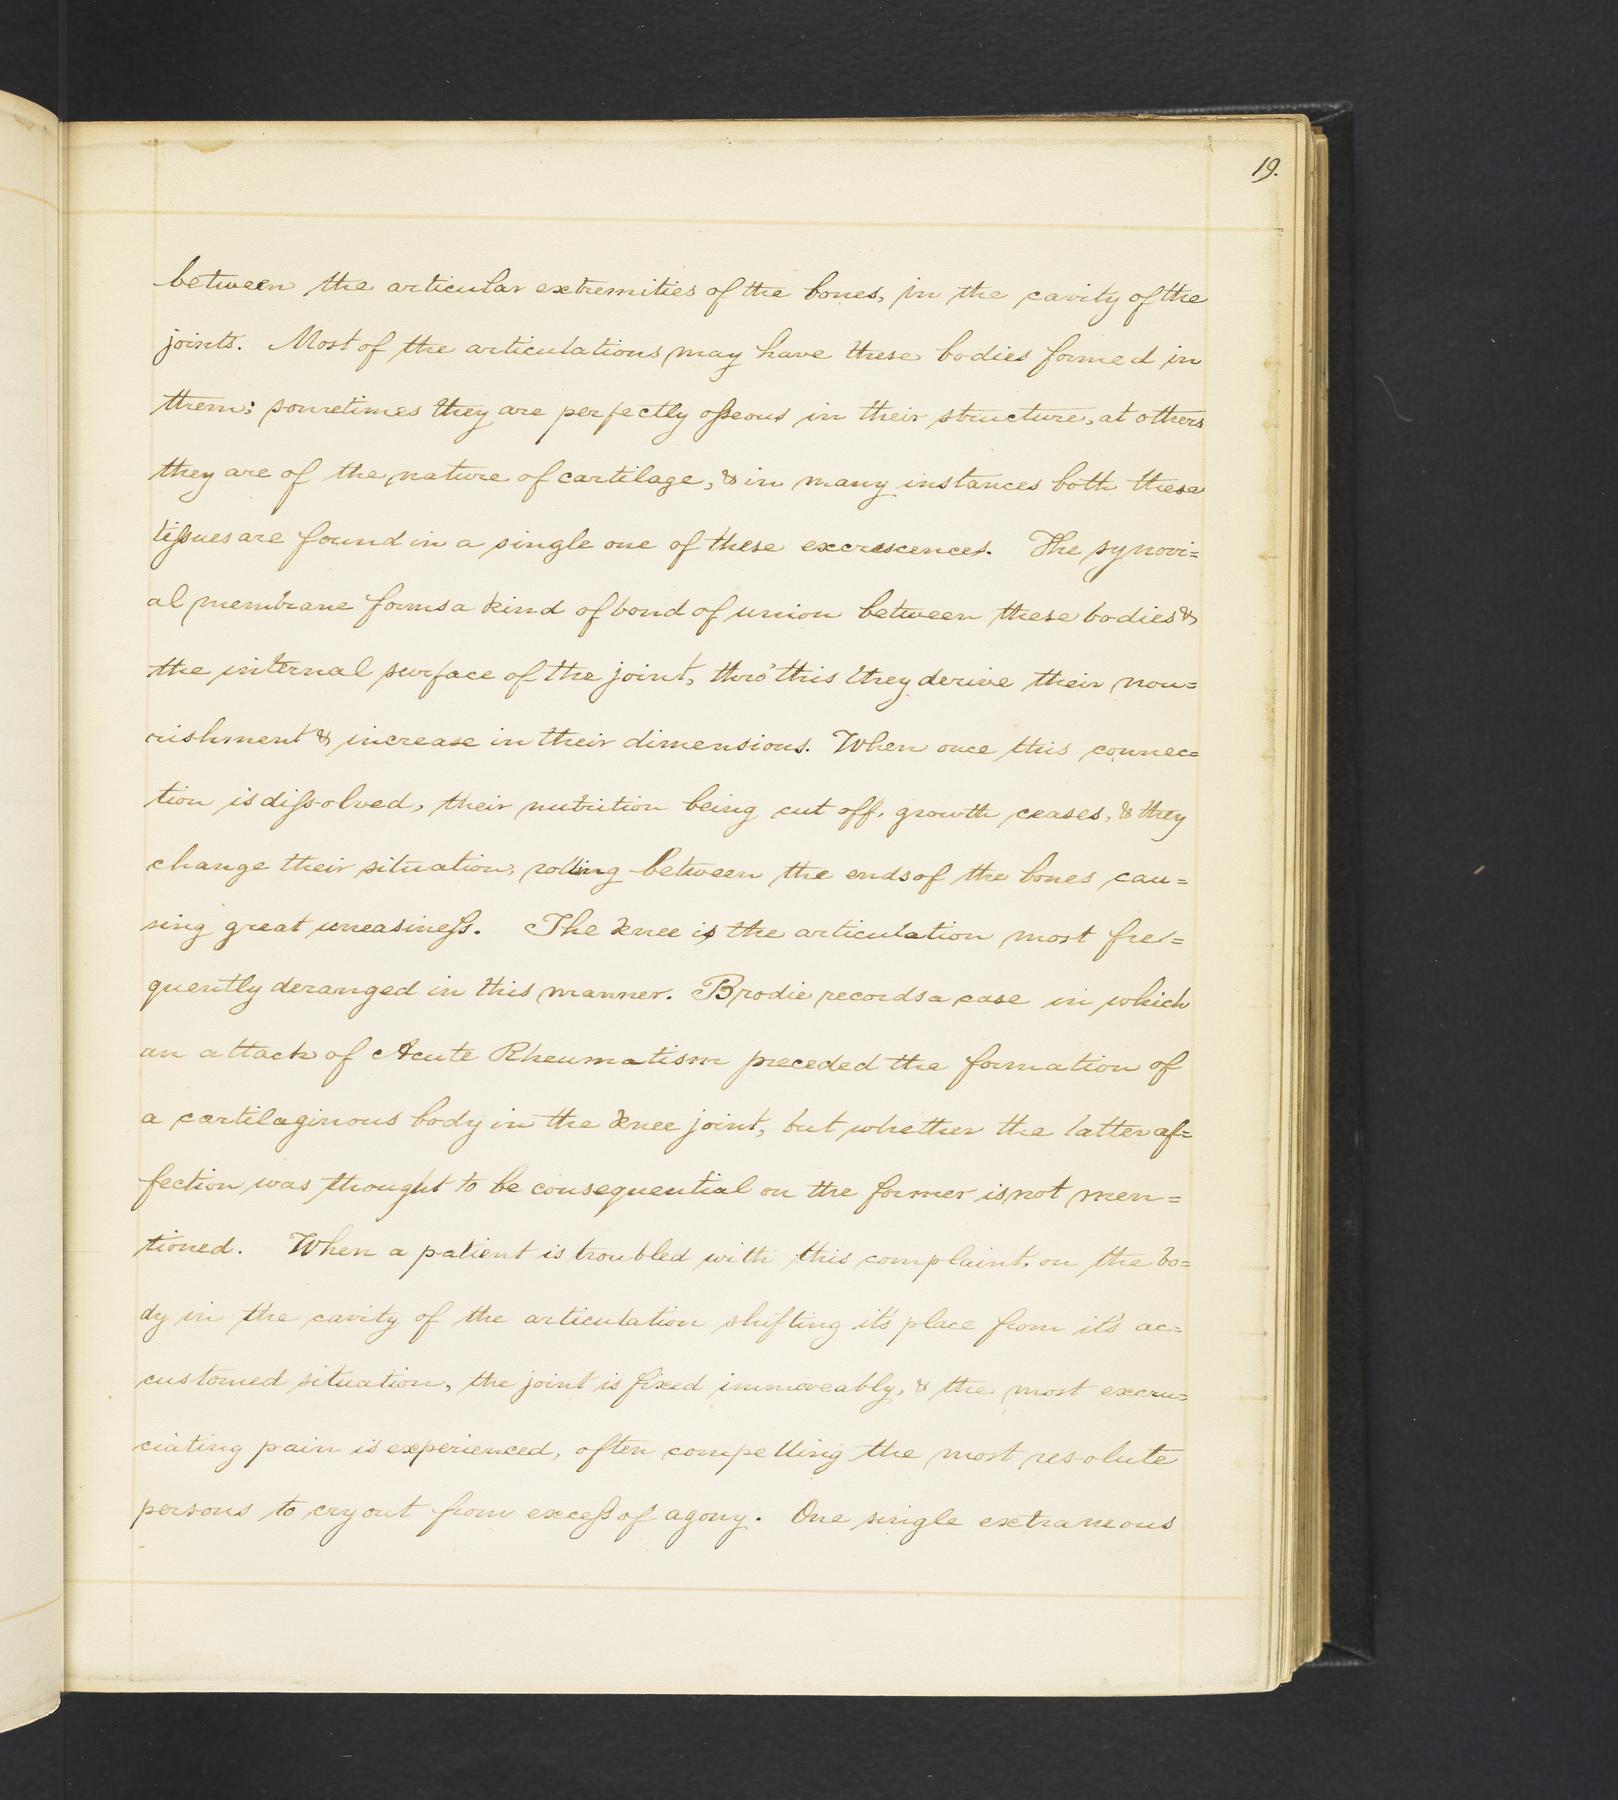 19.
between the articular extremities of the bones, in the cavity of the
joints. Most of the articulations may have these bodies formed in
them; sometimes they are perfectly oſseous in their structure, at others
they are of the nature of cartilage, & in many instances both these
tiſsues are found in a single one of these excrescences. The synovi=
al membrane forms a kind of bond of union between these bodies &
the internal surface of the joint, thro' this they derive their nou=
rishment & increase in their dimensions. When once this connec=
tion is diſsolved, their nutrition being cut off, growth ceases, & they
change their situation, rolling between the ends of the bones cau=
sing great uneasineſs. The knee is the articulation most fre=
quently deranged in this manner. Brodie records a case in which
an attack of Acute Rheumatism preceded the formation of
a cartilaginous body in the knee joint, but whether the latter af=
fection was thought to be consequential on the former is not men=
tioned. When a patient is troubled with this complaint, on the bo=
dy in the cavity of the articulation shifting it's place from it's ac=
customed situation, the joint is fixed immoveably, & the most excru=
ciating pain is experienced, often compelling the most resolute
persons to cry out from exceſs of agony. One single extraneous